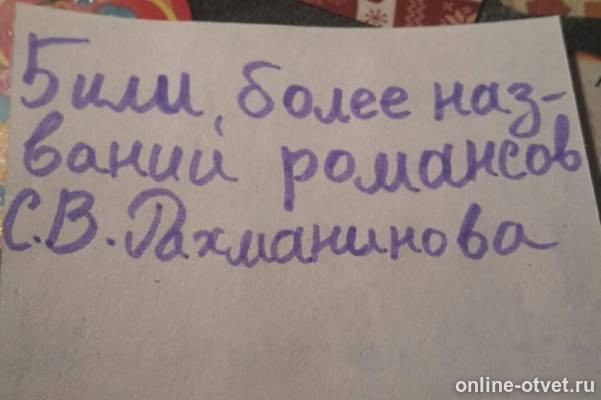 5 или, более наз-
ваний романсов
С.В. Рахманинова
online-otvet.ru